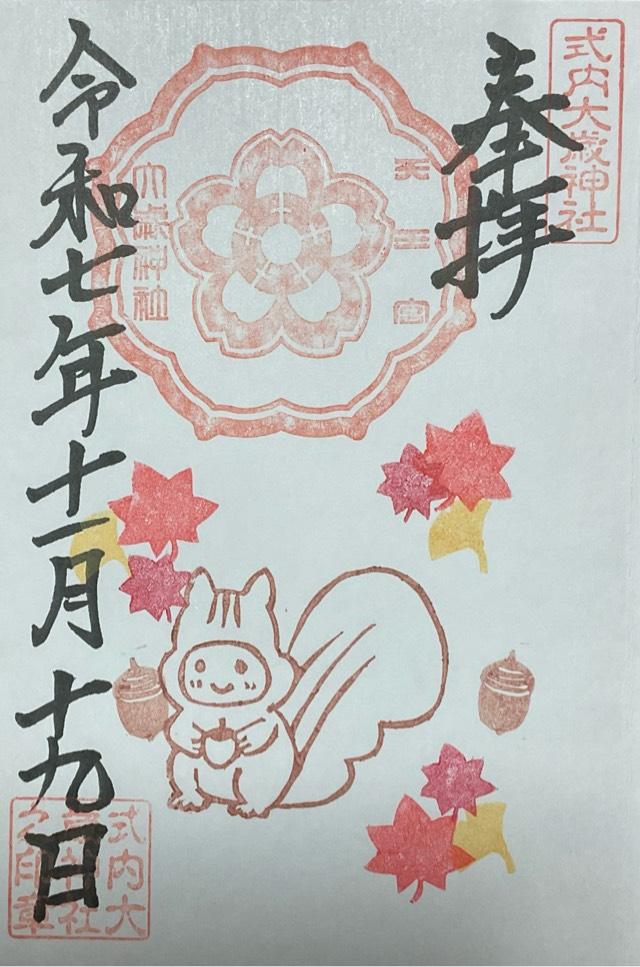 式内大歳神社
奉拝
天王宮
大歳神社
令和七年十一月十九日
式内大
歳神社
之印章